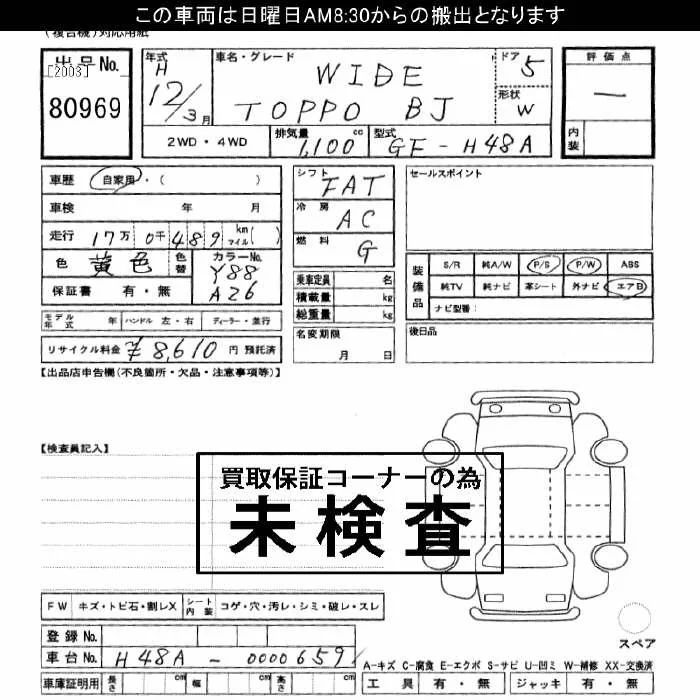 この車両は日曜日AM8:30からの搬出となります
(複合機)対応用紙
出品No. [2003] 80969
年式 H 12/3月
車名・グレード WIDE TOPPO BJ
ドア 5
形状 W
評価点 —
内装
2WD・4WD 排気量 1,100 cc 型式 GF-H48A
車歴 自家用・( )
車検 年 月
走行 17万0千489 km マイル( )
色 黄色 色替 カラーNo. Y88 A26
保証書 有・無
モデル年式 年 ハンドル 左・右 ディーラー・並行
リサイクル料金 ¥8,610 円 預託済
シフト FAT
冷房 AC
燃料 G
乗車定員 名
積載量 kg
総重量 kg
名変期限 月 日
セールスポイント
装備品 S/R 純A/W P/S P/W ABS
純TV 純ナビ 革シート 外ナビ エアB
ナビ型番:
後日品
【出品店申告欄(不良箇所・欠品・注意事項等)】
【検査員記入】
買取保証コーナーの為
未検査
FW キズ・トビ石・割レX シート内装 コゲ・穴・汚レ・シミ・破レ・スレ
登録No.
車台No. H48A-0000659
スペア
A-キズ C-腐食 E-エクボ S-サビ U-凹ミ W-補修 XX-交換済
車庫証明用 長さ cm 幅 cm 高さ cm 工具 有・無 ジャッキ 有・無